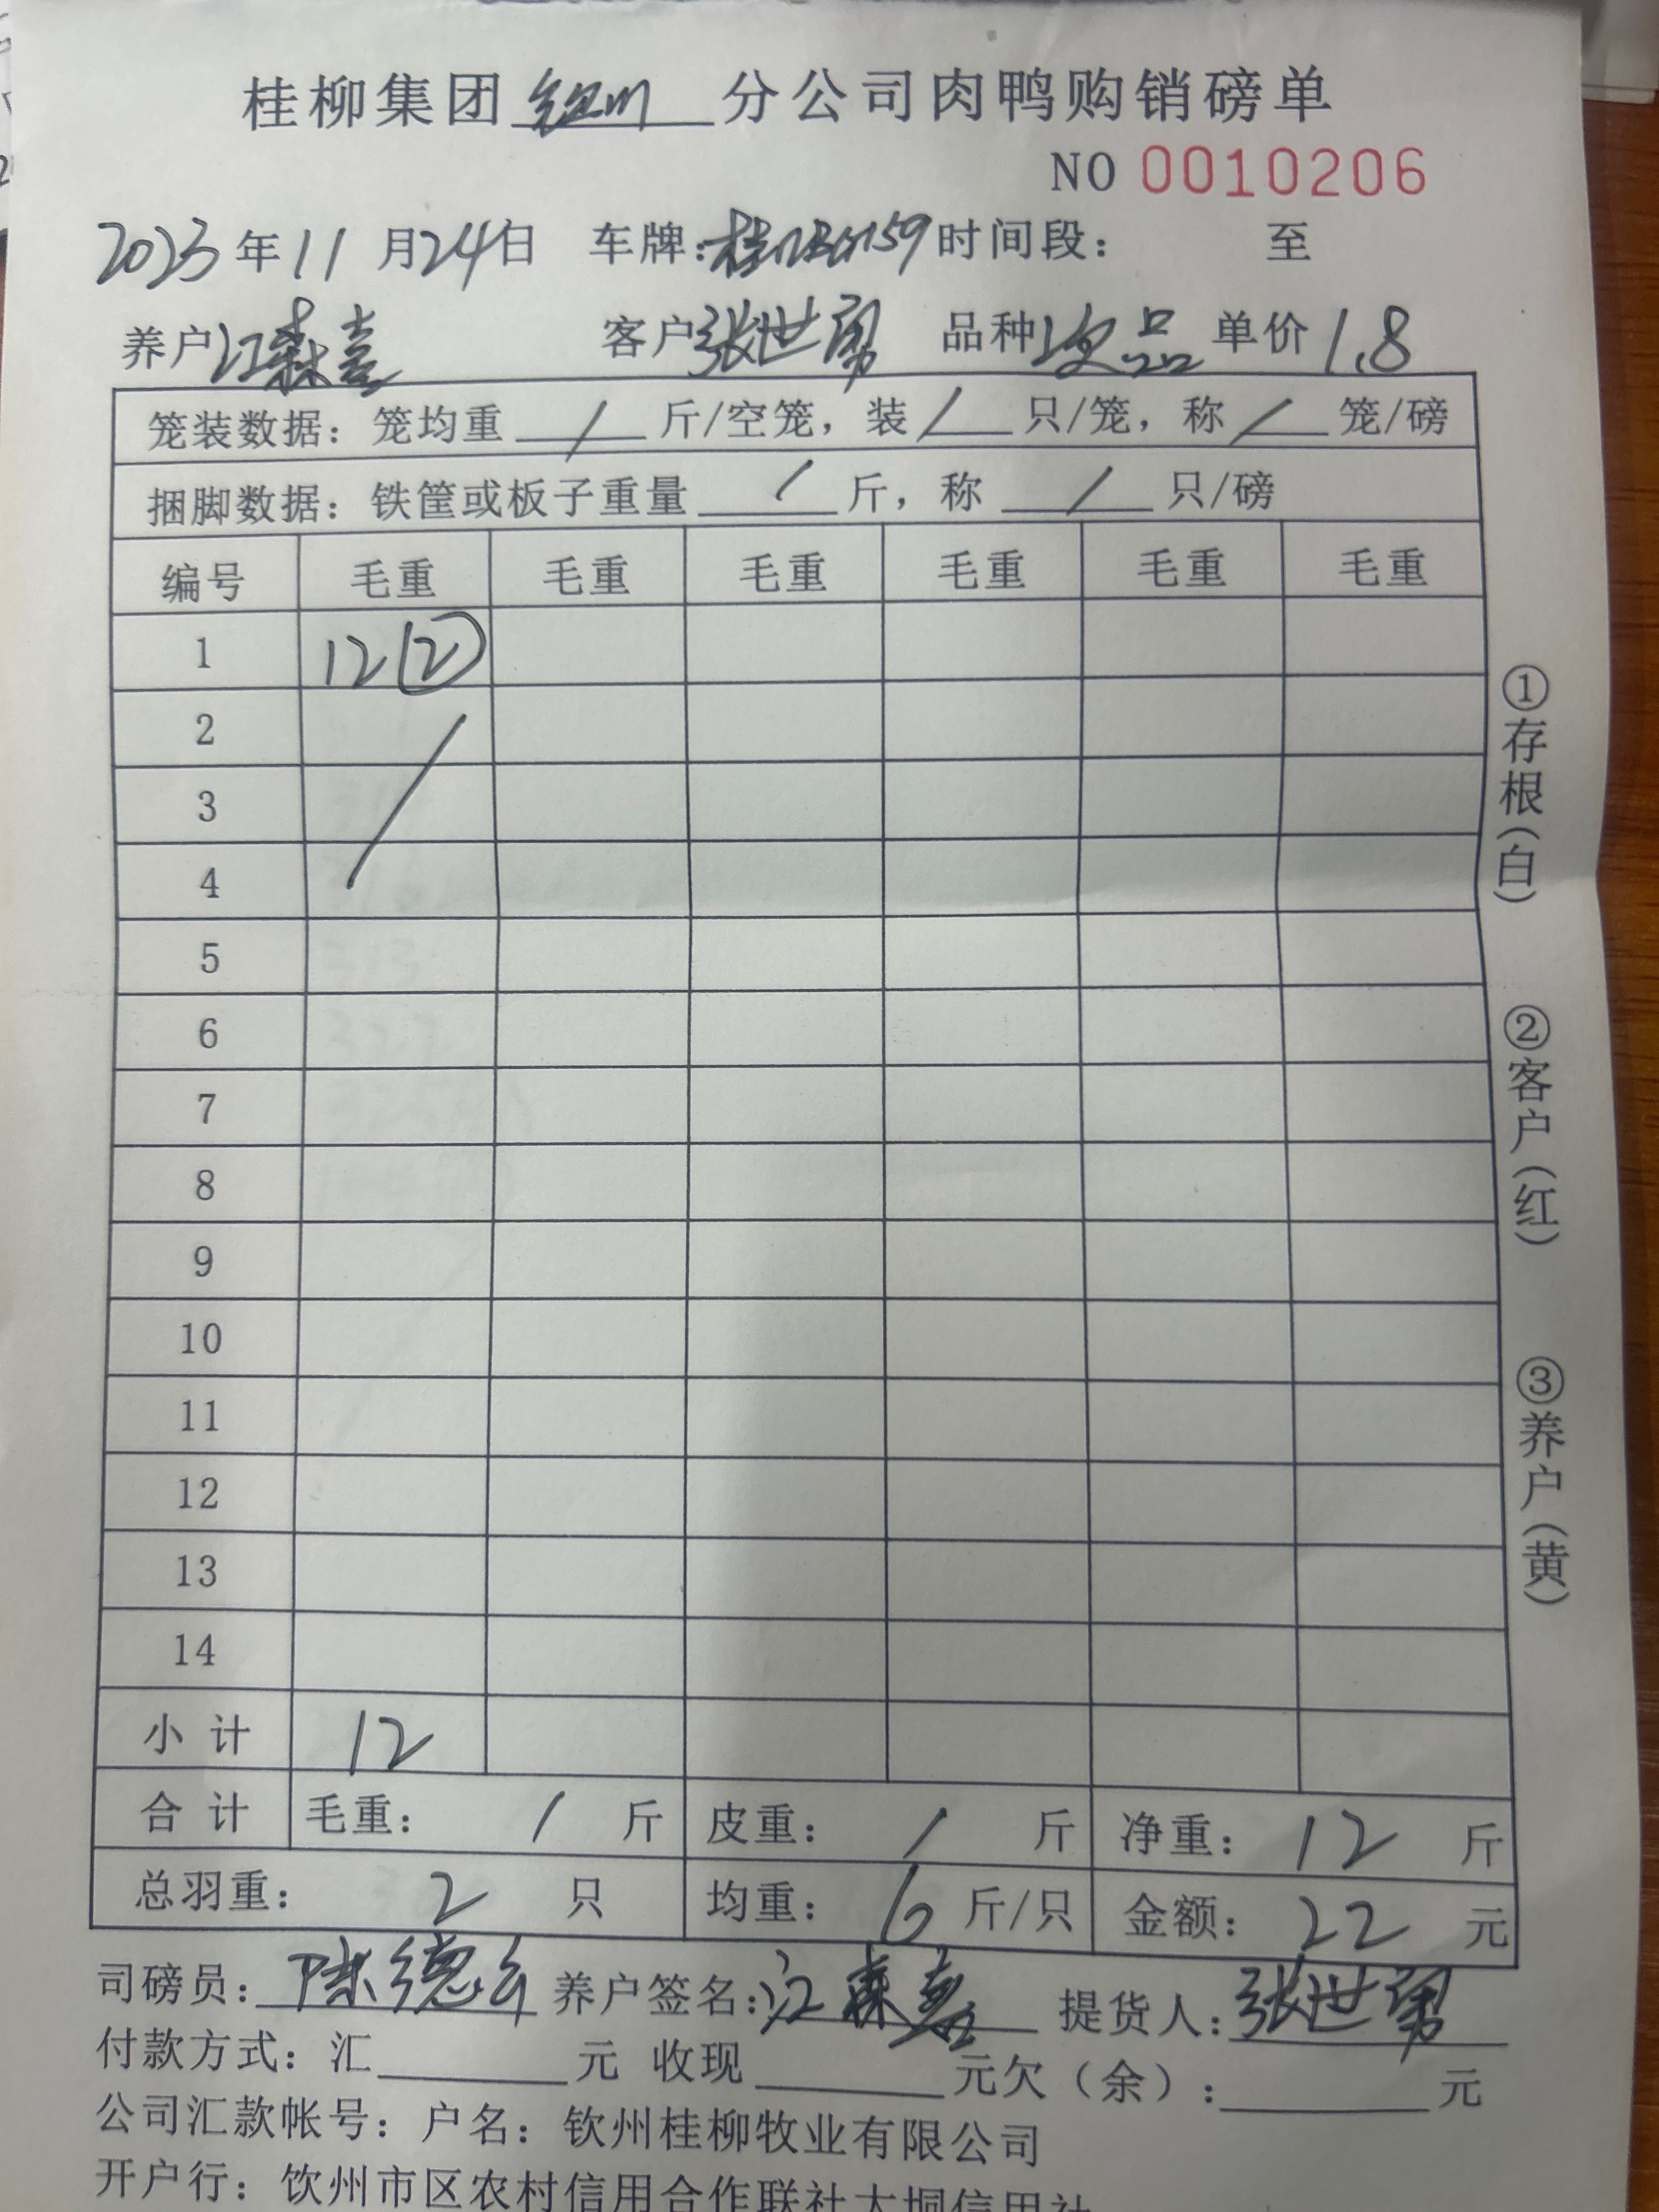 桂柳集团 钦州 分公司肉鸭购销磅单
NO 0010206
2023年11月24日 车牌: 时间段: 至
养户 江森喜 客户 张世勇 品种 次品 单价 1.8
笼装数据: 笼均重 / 斤/空笼, 装 / 只/笼, 称 / 笼/磅
捆脚数据: 铁筐或板子重量 / 斤, 称 / 只/磅
编号 毛重 毛重 毛重 毛重 毛重 毛重
1 12 ②
2
3
4
5
6
7
8
9
10
11
12
13
14
小计 12
合计 毛重: / 斤 皮重: / 斤 净重: 12 斤
总羽重: 2 只 均重: 6 斤/只 金额: 22 元
司磅员: 陈德 养户签名: 江森喜 提货人: 张世勇
付款方式: 汇 元 收现 元欠(余): 元
公司汇款帐号: 户名: 钦州桂柳牧业有限公司
开户行: 钦州市区农村信用合作联社大垌信用社
①存根(白)
②客户(红)
③养户(黄)